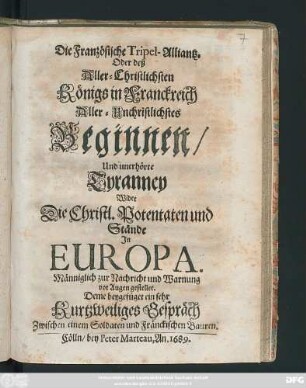 7
Die Französische Tripel-Alliantz.
Oder deß
Aller-Christlichsten
Königs in Franckreich
Aller-Unchristlichstes
Beginnen/
Und unerhörte
Tyranney
Wider
Die Christl. Potentaten und
Stände
In
EUROPA.
Männiglich zur Nachricht und Warnung
vor Augen gestellet.
Deme beygefüget ein sehr
Kurtzweiliges Gespräch
Zwischen einem Soldaten und Fränckischen Bauren.
Cölln/ bey Peter Marteau, An. 1689.